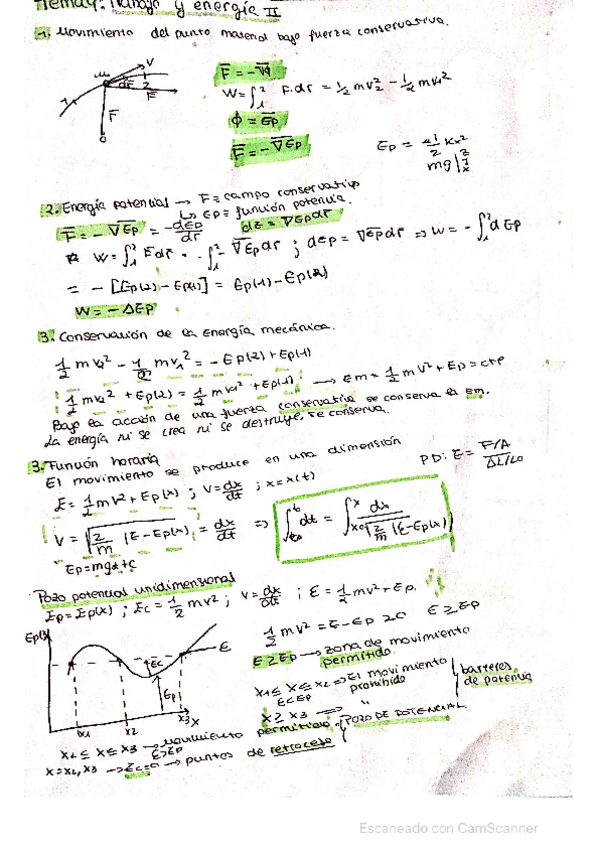 Tema 4: Trabajo y energía II
1. Movimiento del punto material bajo fuerza conservativa.
F = -∇φ
W = ∫₁² F·dr = ½ mv₂² - ½ mv₁²
Φ = Ep
F = -∇Ep
Ep = ½ Kx²
mg
2. Energía potencial → F ≡ campo conservativo
↳ Ep ≡ función potencia.
F = -∇Ep = -dEp/dr dE = ∇Ep dr
W = ∫₁² F dr = ∫₁² -∇Ep dr ; dEp = ∇Ep dr ⇒ W = -∫₁² dEp
= -[Ep(2) - Ep(1)] = Ep(1) - Ep(2)
W = -ΔEp
3. Conservación de la Energía mecánica.
½ m v₂² - ½ m v₁² = -Ep(2) + Ep(1)
½ m v₂² + Ep(2) = ½ m v₁² + Ep(1) → Em = ½ m v² + Ep = cte
Bajo la acción de una fuerza conservativa se conserva la Em.
La energía ni se crea ni se destruye, se conserva.
3. Función horaria
El movimiento se produce en una dimensión
PD: E = F/A / ΔL/L₀
E = ½ m v² + Ep(x) ; v = dx/dt ; x = x(t)
v = √(2/m (E - Ep(x))) = dx/dt ⇒ ∫ dt = ∫ dx / √(2/m (E - Ep(x)))
Pozo potencial unidimensional
Ep = Ep(x) ; Ec = ½ m v² ; v = dx/dt ; E = ½ m v² + Ep.
½ m v² = E - Ep ≥ 0 E ≥ Ep
E ≥ Ep → zona de movimiento permitido.
Ep(x) E Ec Ep x₁ x₂ x₃ x
x₁ ≤ x ≤ x₂ ⇒ El movimiento prohibido
E < Ep
barreras de potencia
x ≥ x₃ ⇒ "
x₂ ≤ x ≤ x₃ → movimiento permitido POZO DE POTENCIAL
E > Ep
x = x₂, x₃ → Ec = 0 → puntos de retroceso
Escaneado con CamScanner